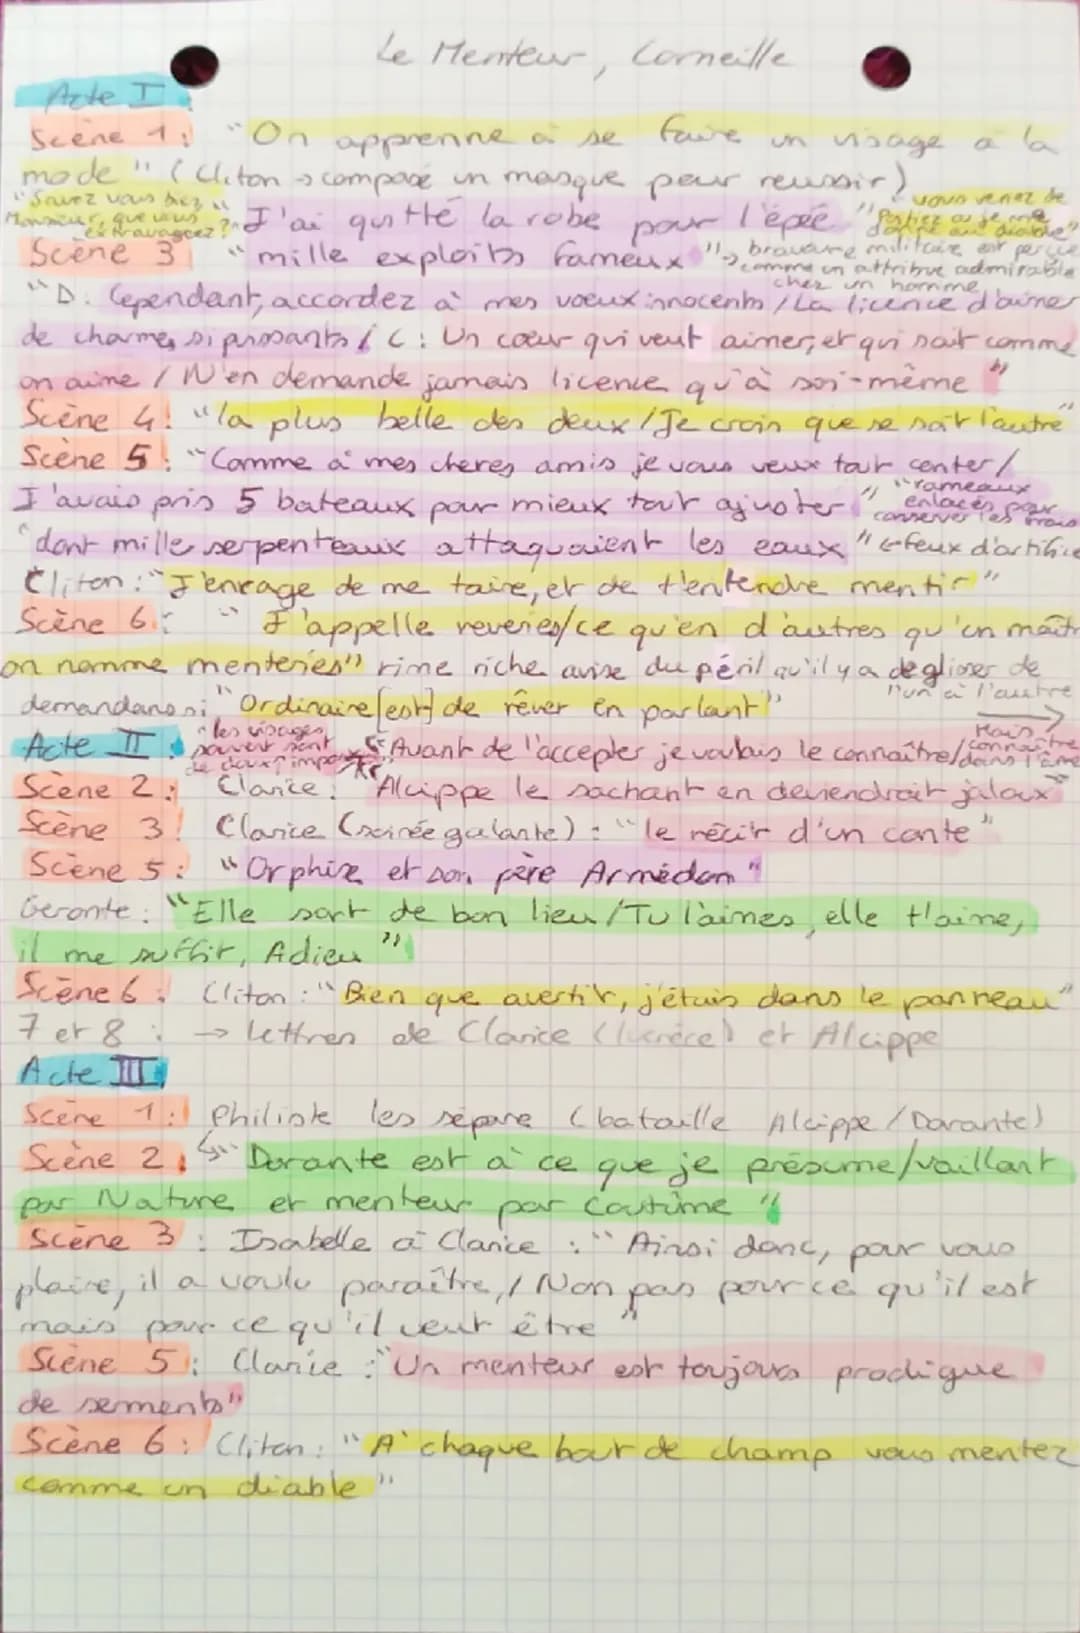 Le Menteur, Corneille
Acte I
Scène 1: "On apprenne à se faire un visage à la
mode" (Cliton → composé un masque pour reussir)
"Savez vous bien
Monsieur, que vous
extravaguez?"
"J'ai quitté la robe pour l'épée"
vous venez de
Poitiez ou je me
donne au diable"
Scène 3 "mille exploits fameux" → bravoure militaire est perçue
comme un attribue admirable
chez un homme
"D: Cependant, accordez à mes voeux innocents / La licence d'aimer
de charmes si puissants / C: Un cœur qui veut aimer, et qui sait comme
on aime / N'en demande jamais licence qu'à soi-même"
Scène 4: "la plus belle des deux / Je crois que se soit l'autre"
Scène 5: "Comme à mes cheres amis je vous veux tout conter /
J'avais pris 5 bateaux pour mieux tout ajuster"
"rameaux
enlacés pour
conserver les frais
"dont mille serpenteaux attaquaient les eaux" ← feux d'artifice
Cliton: "J'enrage de me taire, et de t'entendre mentir"
Scène 6: "J'appelle reveries / ce qu'en d'autres qu'un maître
on nomme menteries" rime riche avise du péril qu'il y a de glisser de
l'un à l'autre
demandans si "Ordinaire [est] de rêver en parlant"
Acte II:
"les visages
souvent sont
de doux impos
"Avant de l'accepter je voulais le connaître /
Mais
connaître
dans l'âme
Scène 2: Clarice: "Alcippe le sachant en deviendrait jaloux"
Scène 3: Clarice (soirée galante): "le récit d'un conte"
Scène 5: "Orphise et son père Armédon"
Geronte: "Elle sort de bon lieu / Tu l'aimes, elle t'aime,
il me suffit, Adieu"
Scène 6: Cliton: "Bien que avertit, j'étais dans le panneau"
7 et 8: → lettres de Clarice (lucrèce) et Alcippe
Acte III
Scène 1: Philiste les sépare (bataille Alcippe / Dorante)
Scène 2: ↳ "Dorante est à ce que je présume / vaillant
par Nature et menteur par Coutûme"
Scène 3: Isabelle à Clarice: "Ainsi donc, pour vous
plaire, il a voulu paraître, / Non pas pour ce qu'il est
mais pour ce qu'il veut être"
Scène 5: Clarice: "Un menteur est toujours prodigue
de serments"
Scène 6: Cliton: "A chaque bout de champ vous mentez
comme un diable"